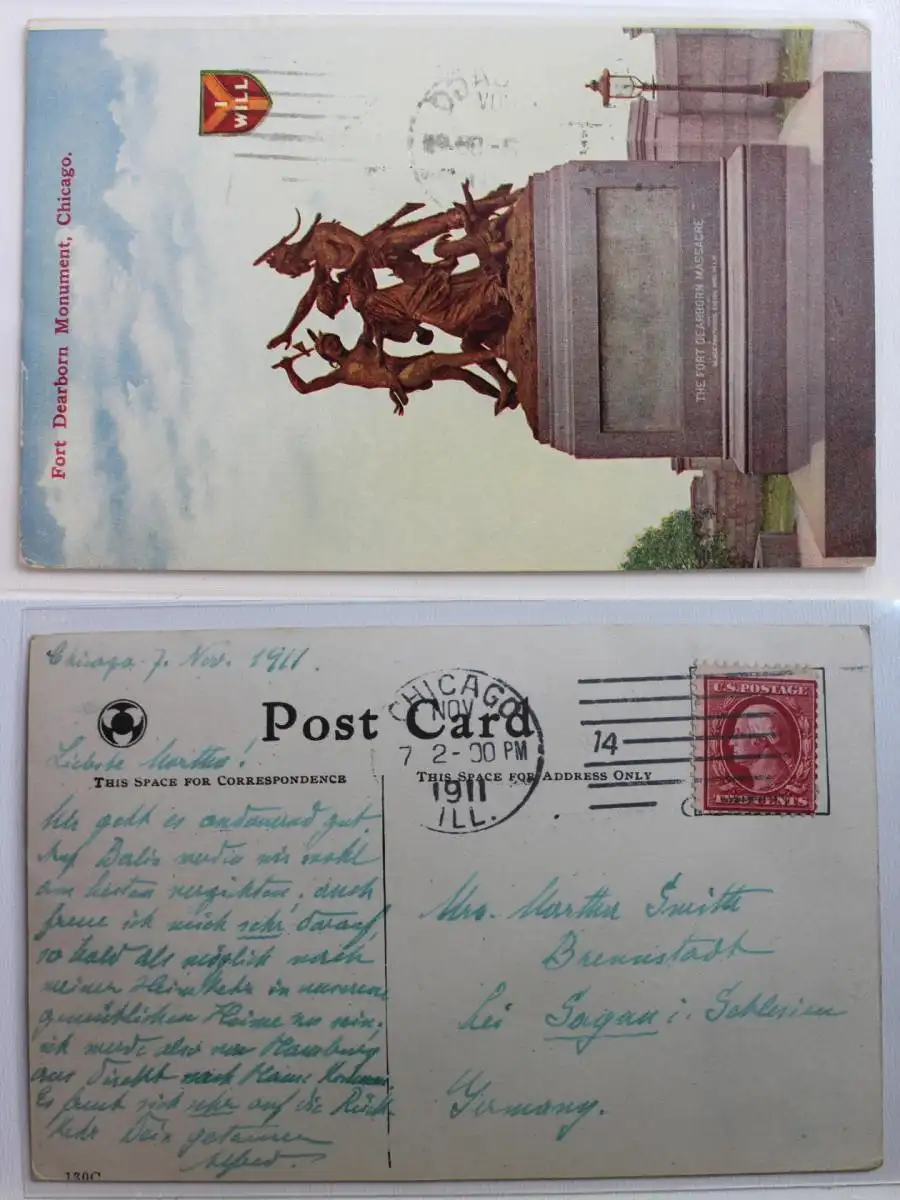 Fort Dearborn Monument, Chicago.
I
WILL
THE FORT DEARBORN MASSACRE
Chicago 7. Nov. 1911.
Post Card
CHICAGO
NOV
7 2-00 PM
1911
ILL.
14
U.S. POSTAGE
CENTS
Liebste Martha!
THIS SPACE FOR CORRESPONDENCE
THIS SPACE FOR ADDRESS ONLY
Mir geht es andauernd gut.
Auf werden wir wohl
am besten verzichten; auch
freue ich mich sehr darauf,
so bald als möglich nach
meiner Heimkehr in unserem
gemütlichen Heime zu sein;
ich werde also von Hamburg
aus direkt nach Hause kommen.
Es freut sich sehr auf die Rück
kehr Dein getreuer
Alfred.
Mrs. Martha Smith
Brennstadt
bei Sagan i. Schlesien
Germany.
130C